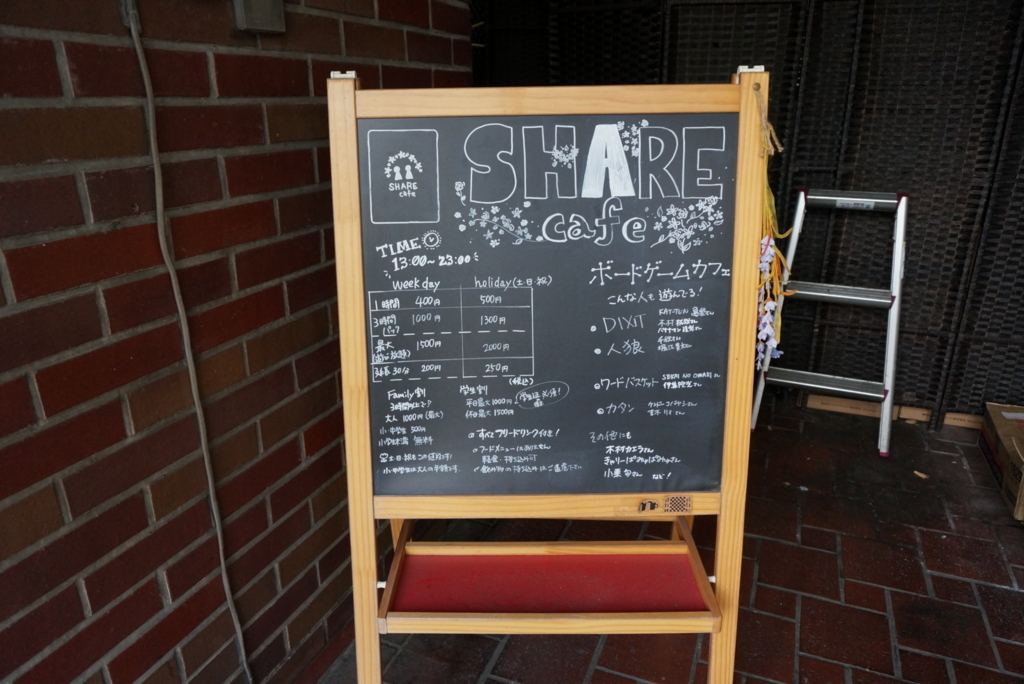 SHARE
cafe
SHARE
cafe
TIME
13:00~23:00
weekday holiday(土・日・祝)
1時間 400円 500円
3時間パック 1000円 1300円
最大(遊び放題) 1500円 2000円
延長30分 200円 250円
(税込)
Family割
3時間以上で
大人 1000円(最大)
小・中学生 500円
小学生未満 無料
学生割
平日最大1000円
休日最大1500円
学生証必須!
◎すべてフリードリンク付き!
ボードゲームカフェ
こんな人も遊んでる!
● DIXIT
● 人狼
●ワードバスケット SEKAI NO OWARI
● カタン
その他にも
木村カエラさん
きゃりーぱみゅぱみゅさん
小栗旬さん など!